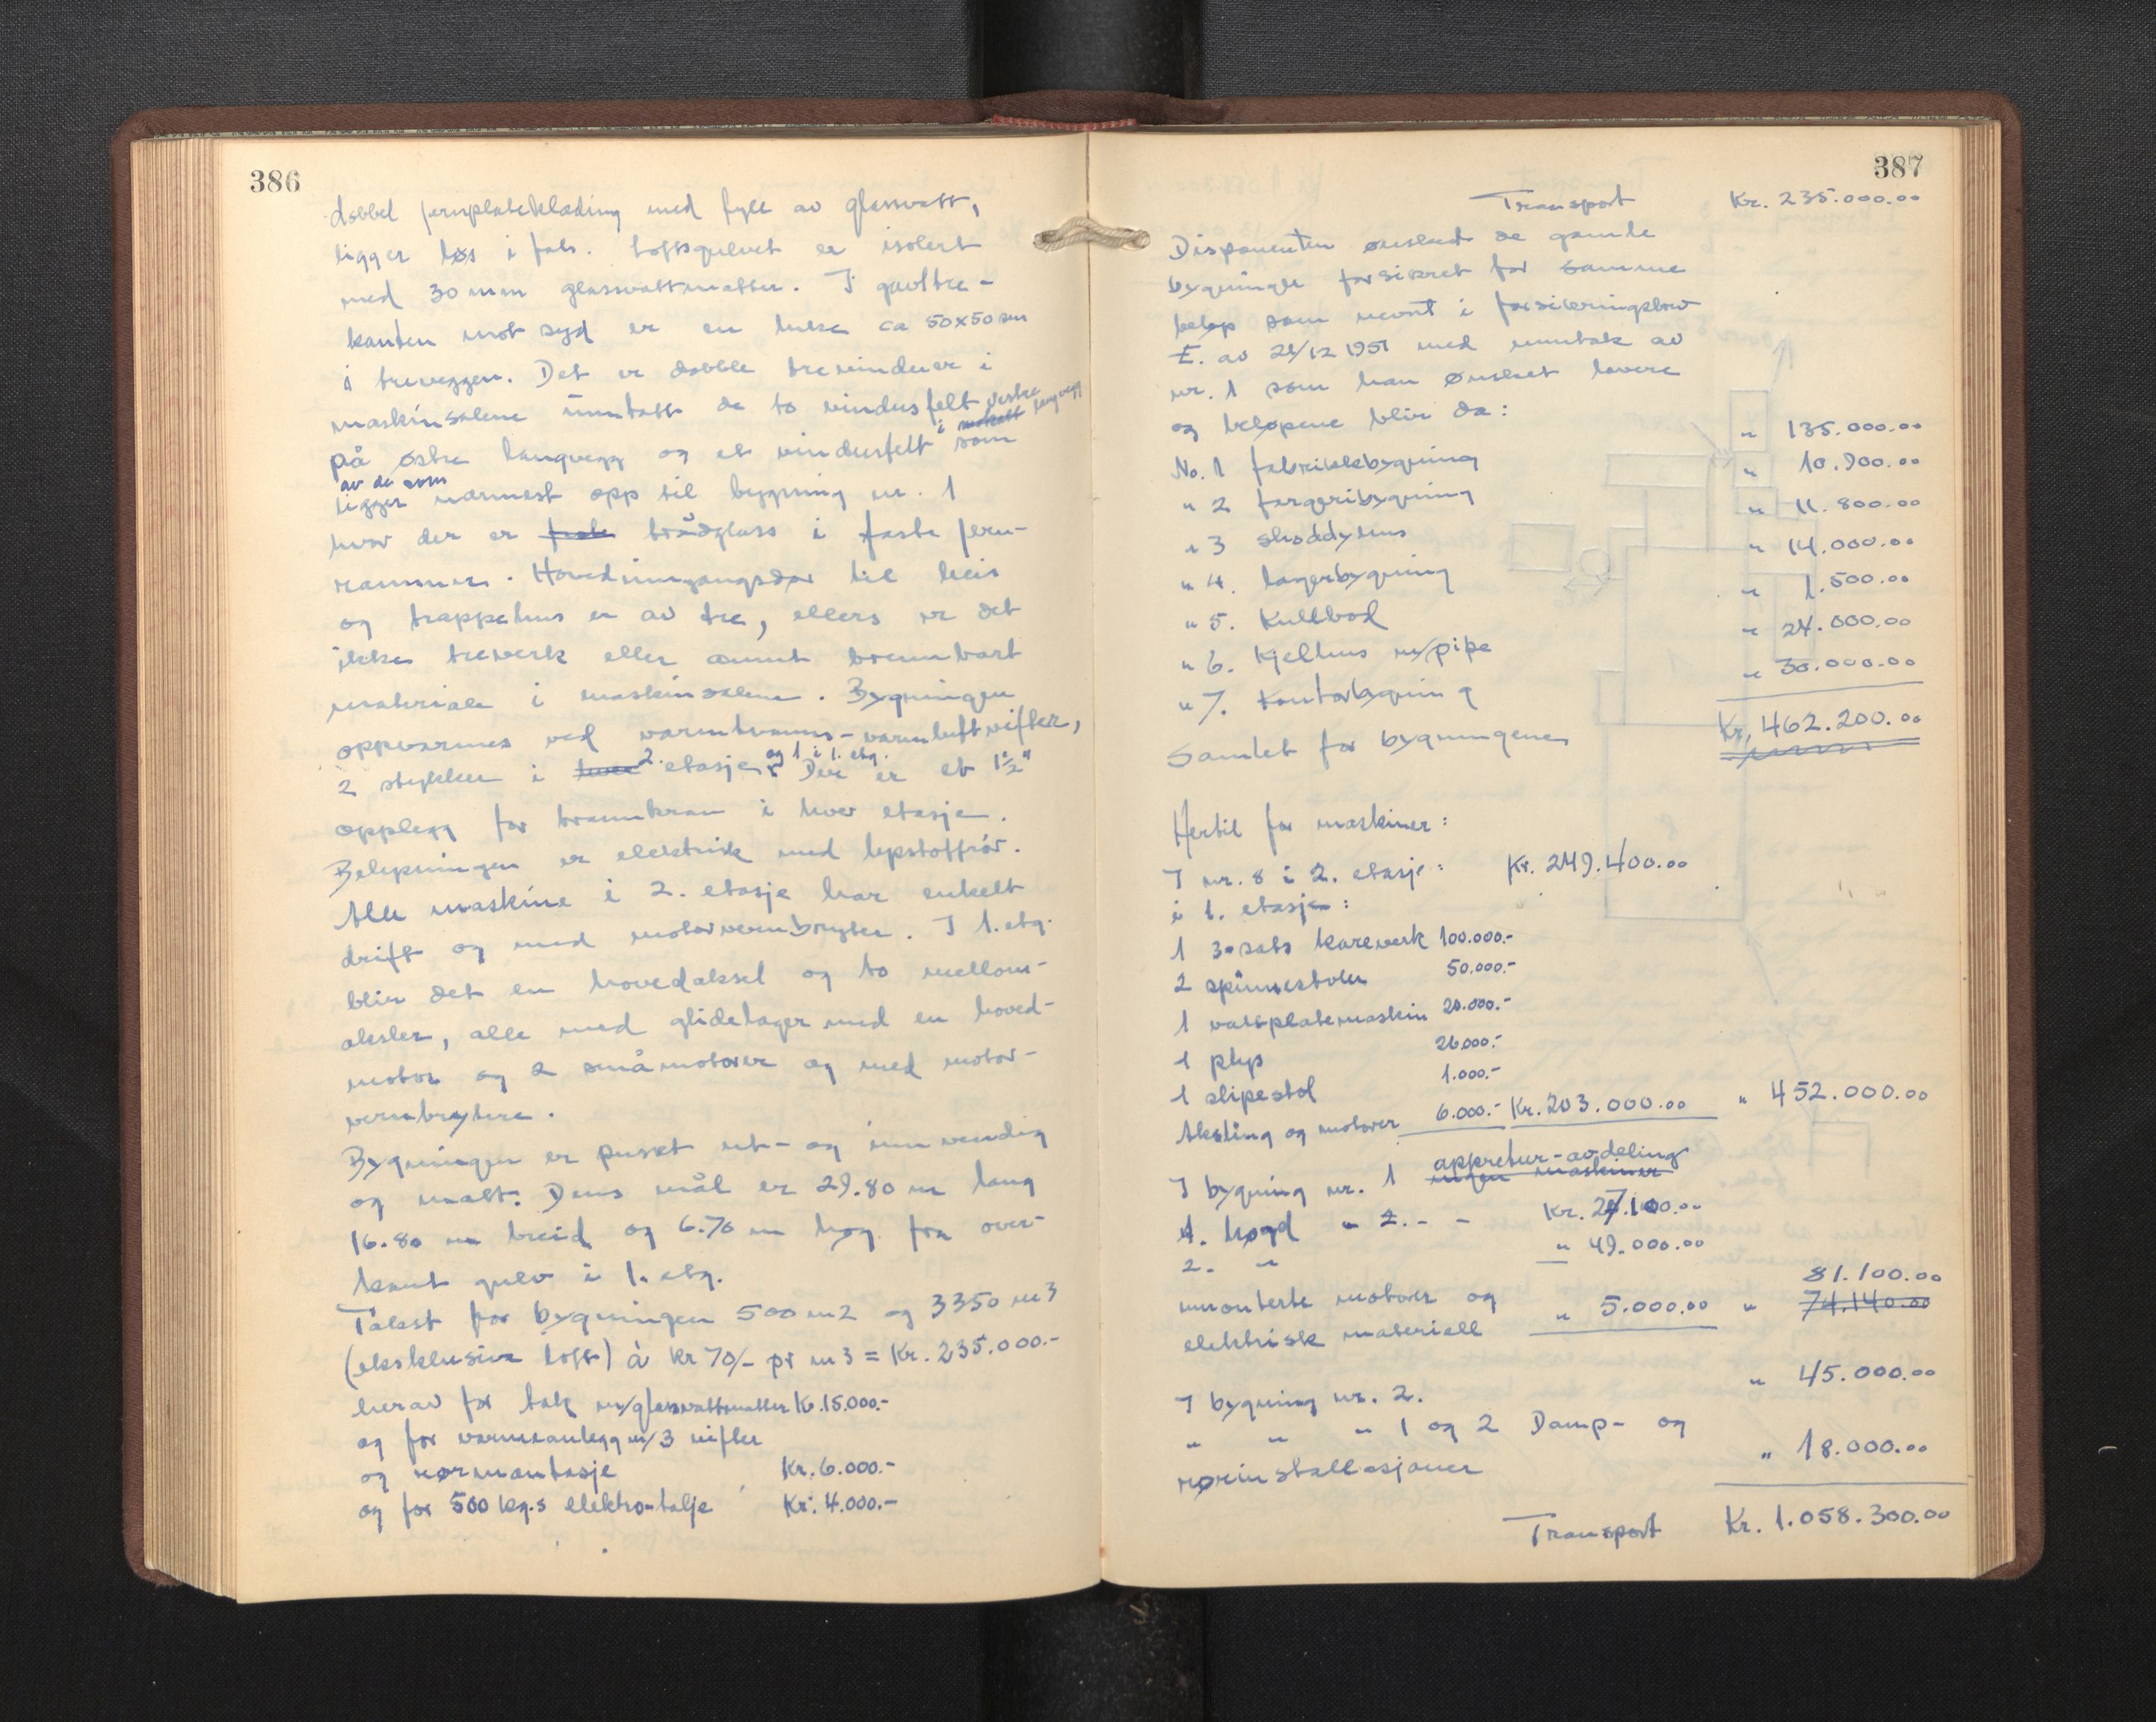 386
dobbel jernplateklæding med fyll av glassvatt,
ligger løs i fals. Loftsgulvet er isolert
med 30 mm glassvattmatter. I gavltre-
kanten mot syd er en luke ca 50x50 sm
i treveggen. Det er doble trevinduer i
maskinsalene unntatt de to vindusfelt
på østre langvegg og et vindusfelt i vestre langvegg som
av de som
ligger nærmest opp til bygning nr. 1
hvor der er trådglass i faste jern-
rammer. Hovedinngangsdør til heis
og trappehus er av tre, ellers er det
ikke treverk eller annet brennbart
materiale i maskinsalene. Bygningen
oppvarmes ved varmtvanns-varmluftvifter,
2 stykker i 2. etasje og 1 i 1. etg. Der er et 1½"
opplegg for brannkran i hver etasje.
Belysningen er elektrisk med lysstoffrør.
Alle maskine i 2. etasje har enkelt
drift og med motorvernbryter. I 1. etg.
blir det en hovedaksel og to mellom-
aksler, alle med glidelager med en hoved-
motor og 2 småmotorer og med motor-
vernbrytere.
Bygningen er pusset ut- og innvendig
og malt. Dens mål er 29.80 m lang
16.80 m breid og 6.70 m høg fra over-
kant gulv i 1. etg.
Takst for bygningen 500 m2 og 3350 m3
(eksklusive loft) à kr 70/- pr m3 = Kr. 235.000.-
herav for tak m/glassvattmatter Kr. 15.000.-
og for varmeanlegg m/3 vifter
og rørmontasje Kr. 6.000.-
og for 500 kg.s elektro-talje Kr. 4.000.-
387
Transport Kr. 235.000.00
Disponenten ønsked de gamle
bygninger forsikret for samme
beløp som nevnt i forsikringsbrev
E. av 21/12 1951 med unntak av
nr. 1 som han ønsket lavere
og beløpene blir da:
No. 1 fabrikkbygning " 135.000.00
" 2 fargeribygning " 10.900.00
" 3 shoddyhus " 11.800.00
" 4. lagerbygning " 14.000.00
" 5. Kullbod " 1.500.00
" 6. Kjelhus m/pipe " 24.000.00
" 7. Kontorbygning " 30.000.00
Samlet for bygningene Kr. 462.200.00
Hertil for maskiner:
I nr. 8 i 2. etasje: Kr. 249.400.00
i 1. etasje:
1 3-sats kareverk 100.000.-
2 spinnestoler 50.000.-
1 vattplatemaskin 20.000.-
1 plys 26.000.-
1 slipestol 1.000.-
Aksling og motorer 6.000.- Kr. 203.000.00 " 452.000.00
I bygning nr. 1 appretur-avdeling
ingen maskiner
1. høgd " 2. - - Kr. 27.100.00
2. " " 49.000.00
monterte motorer og 81.100.00
elektrisk materiell " 5.000.00 " 74.140.00
I bygning nr. 2. " 45.000.00
" " " 1 og 2 Damp- og
rørinstallasjoner " 18.000.00
Transport Kr. 1.058.300.00